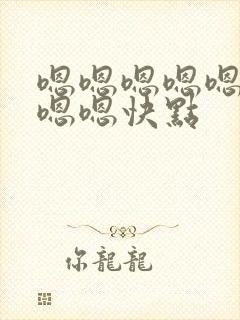 嗯嗯嗯嗯嗯
嗯嗯快點
你龍龍